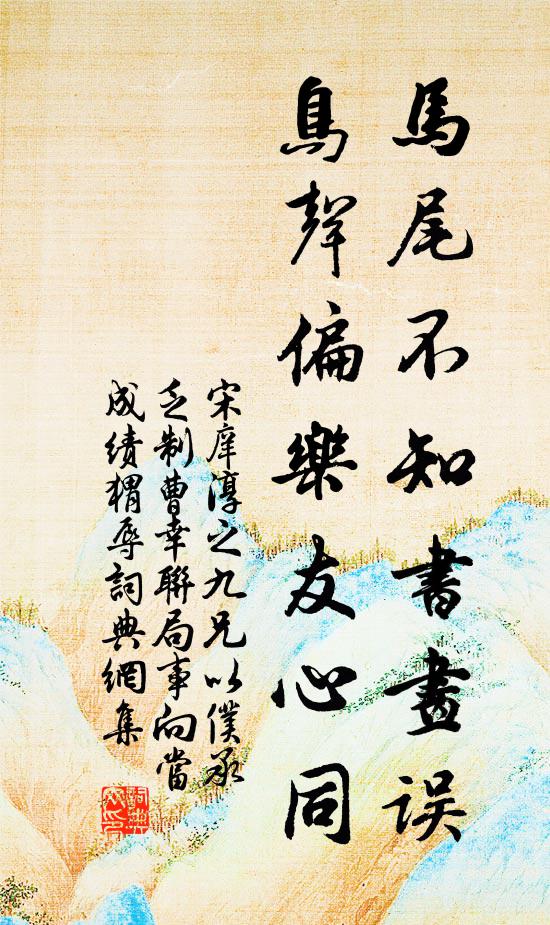 馬尾不知書畫誤
鳥聲偏樂友心同
宋庠淳之九兄以僕承
乏制曹幸聯局事向當
成績猬辱詞典網集